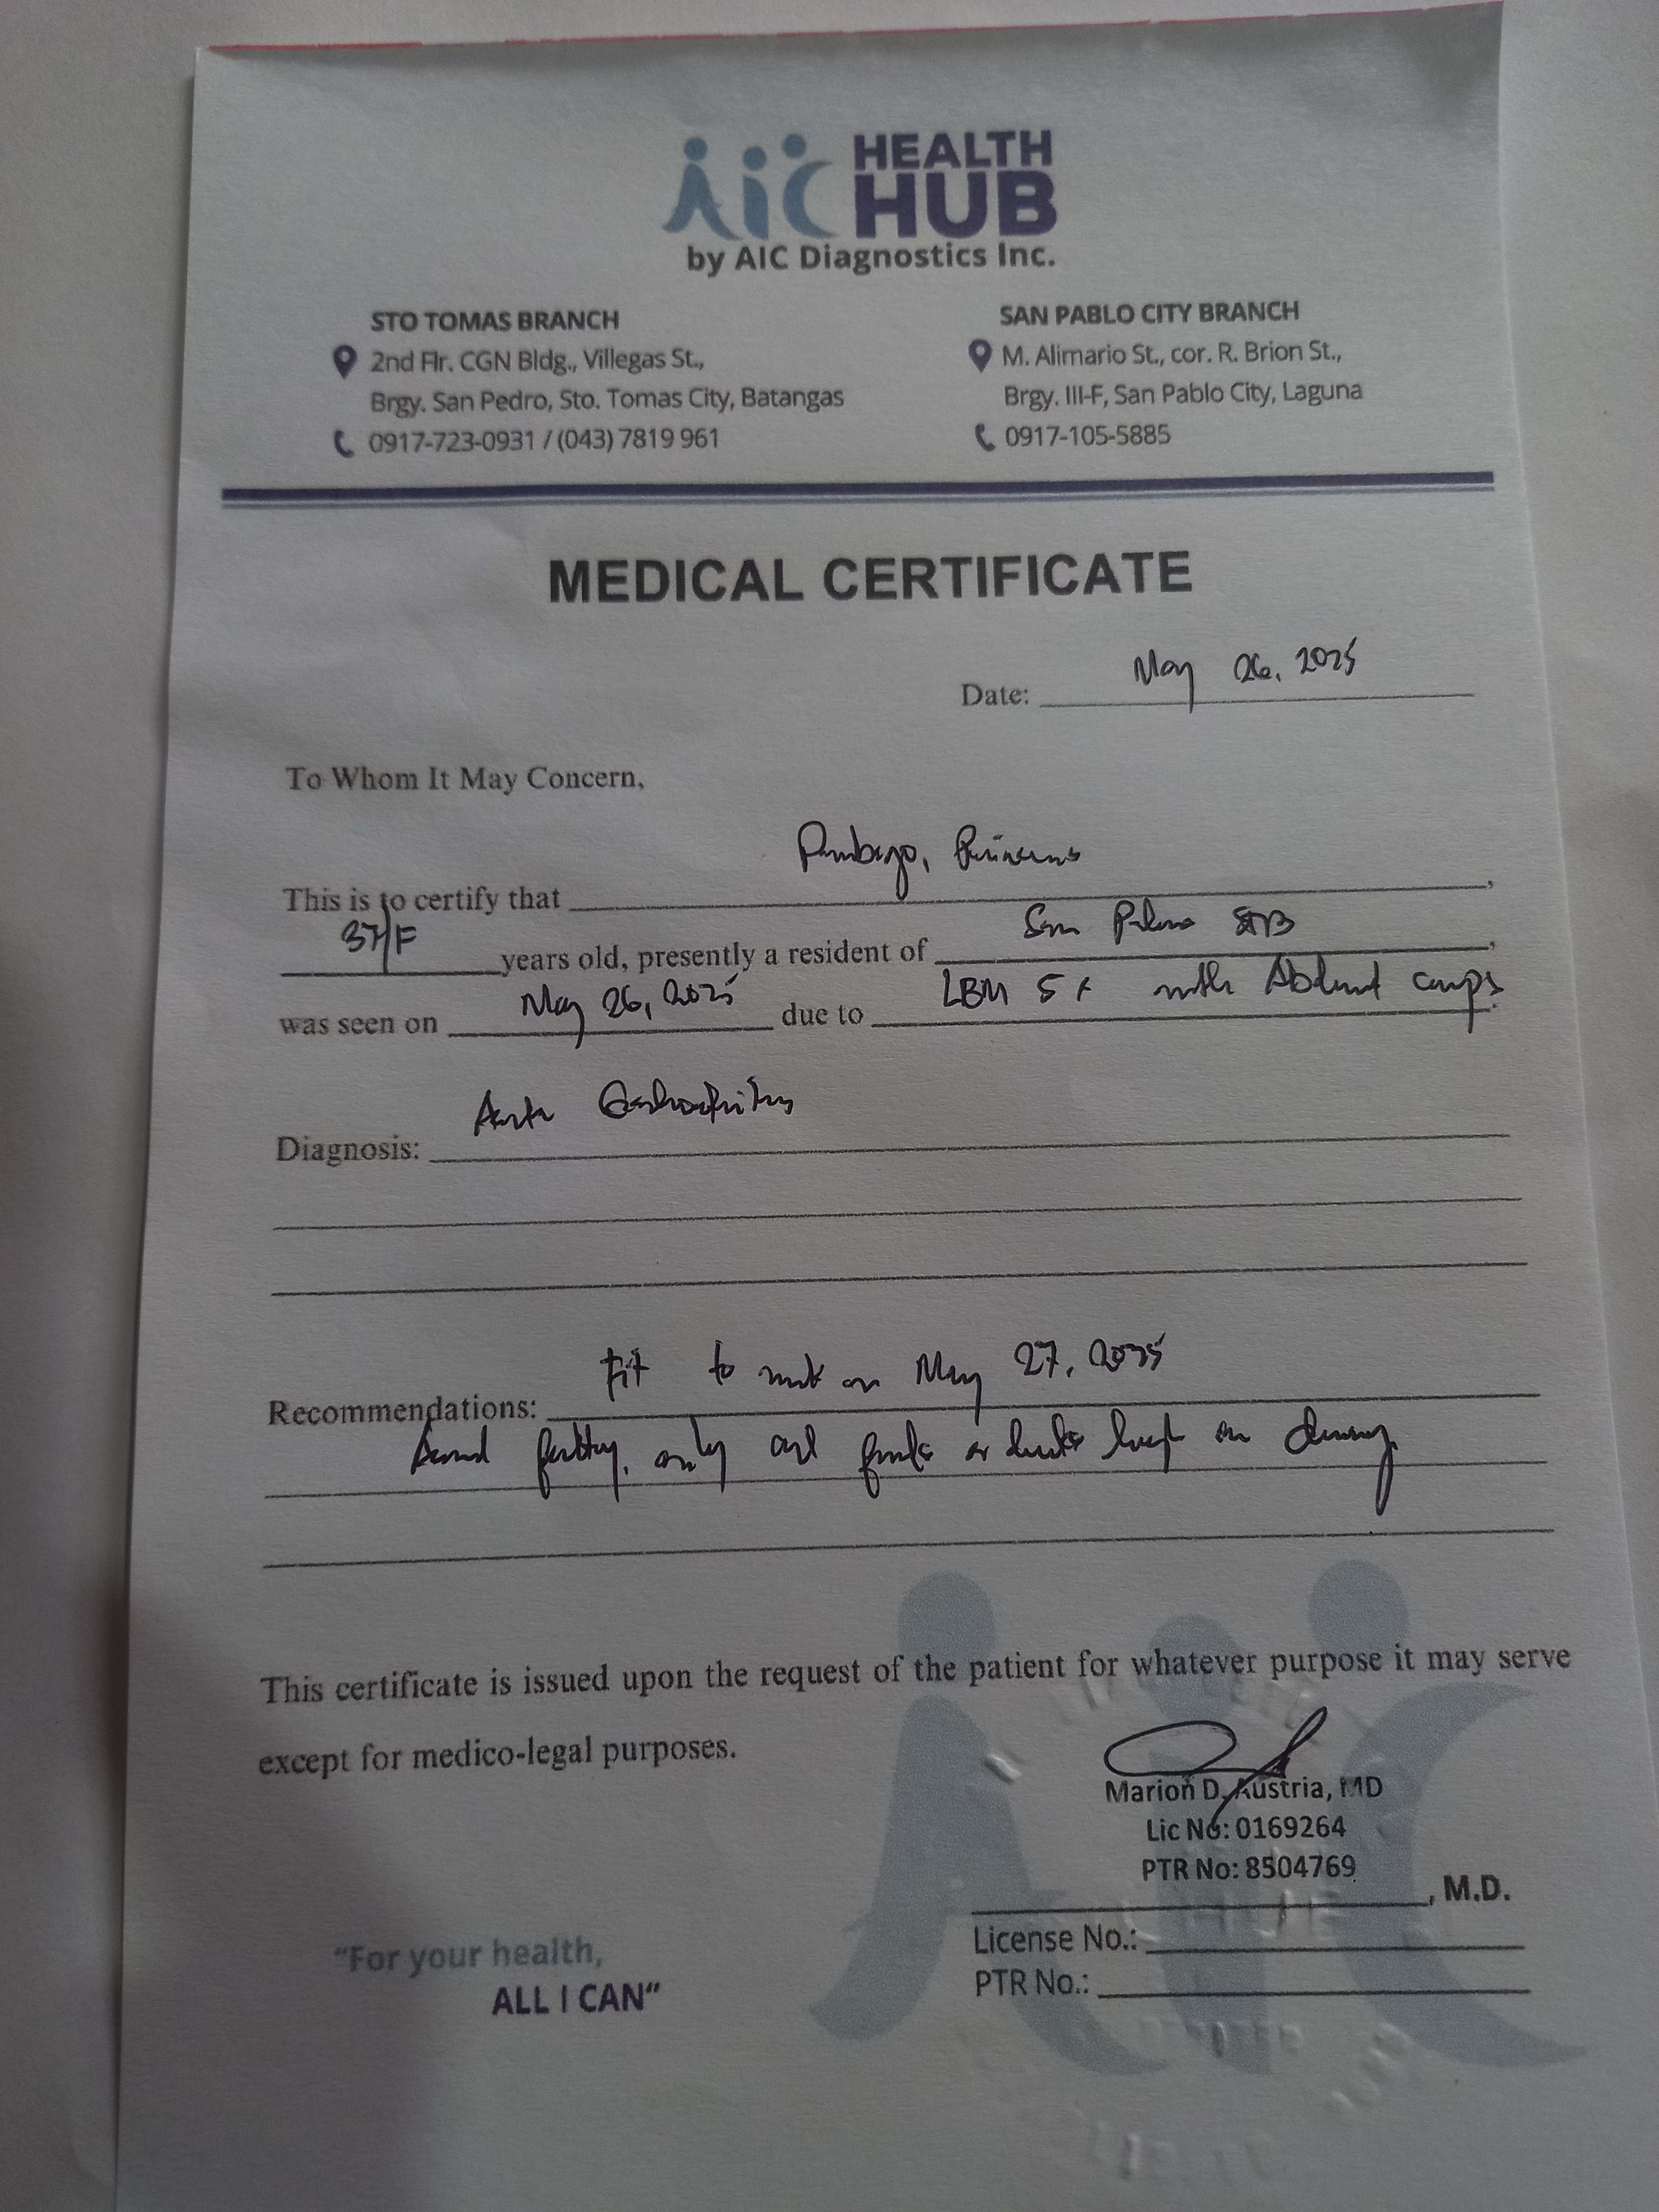 AiC HEALTH HUB
by AIC Diagnostics Inc.
STO TOMAS BRANCH
2nd Flr. CGN Bldg., Villegas St.,
Brgy. San Pedro, Sto. Tomas City, Batangas
0917-723-0931 / (043) 7819 961
SAN PABLO CITY BRANCH
M. Alimario St., cor. R. Brion St.,
Brgy. III-F, San Pablo City, Laguna
0917-105-5885
MEDICAL CERTIFICATE
Date: May 26, 2025
To Whom It May Concern,
This is to certify that ,
37/F years old, presently a resident of San ,
was seen on May 26, 2025 due to LBM 5x with cramps.
Diagnosis: Acute
Recommendations: Fit to work on May 27, 2025
only
This certificate is issued upon the request of the patient for whatever purpose it may serve
except for medico-legal purposes.
Marion D. Austria, MD
Lic No: 0169264
PTR No: 8504769
, M.D.
License No.:
PTR No.:
"For your health,
ALL I CAN"